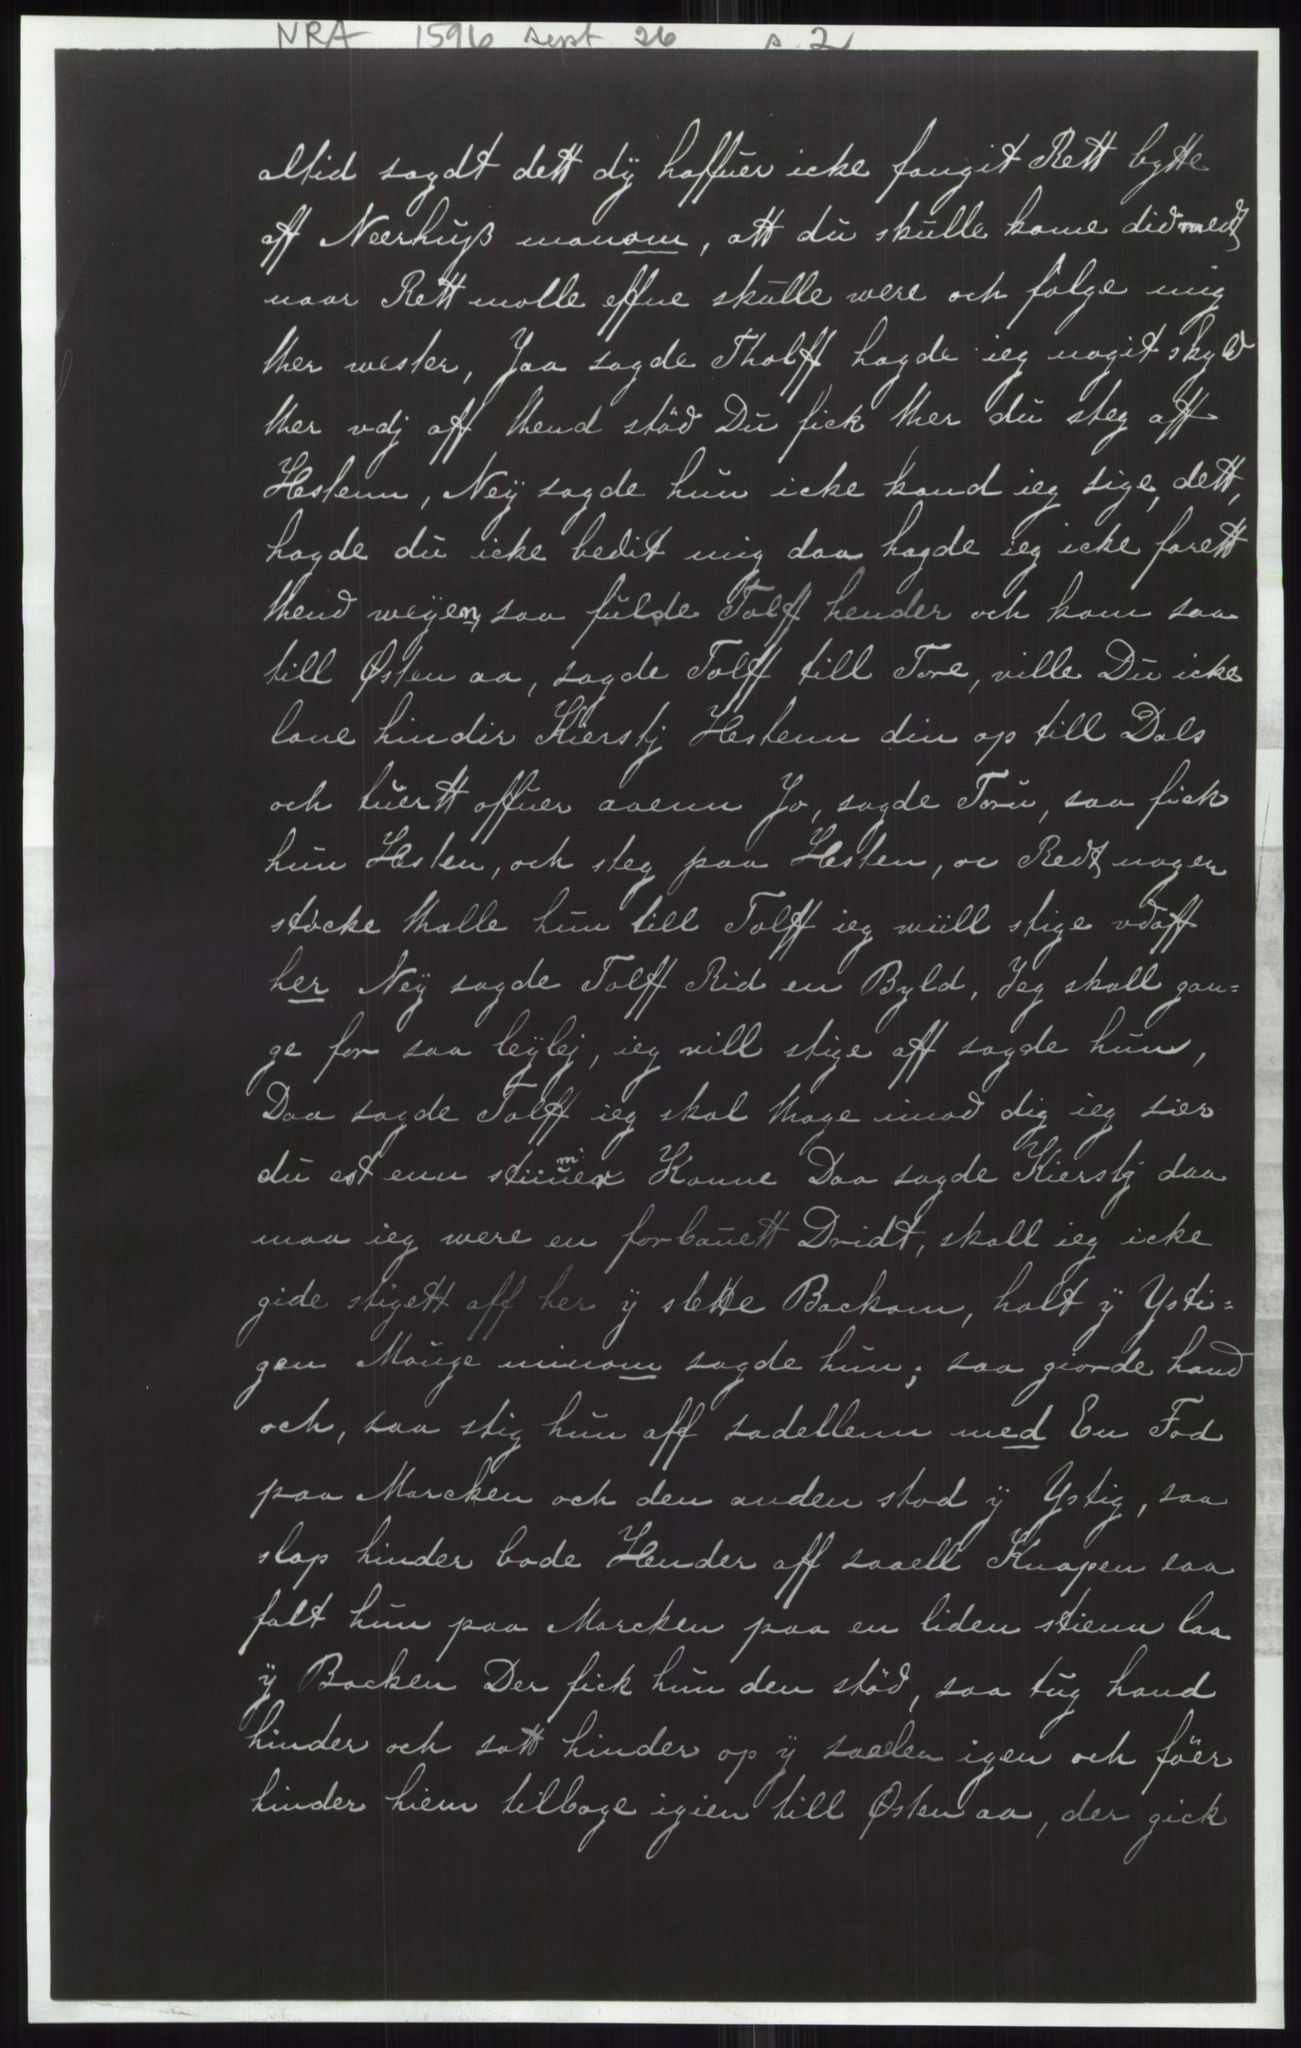 NRA 1596 sept 26 s. 2
altid sagdt dett dÿ haffuer icke fangit Rett bytte
aff Neerhuÿß manom, att du skulle kome did medt
naar Rett molle effne skulle were och følge mig
ther wester, Jaa sagde Tholff hagde ieg nogit skyld
ther vdj aff thend stöd Du fick ther du steg aff
Hestenn, Neÿ sagde hun icke kand ieg sige, dett,
hagde du icke bedit mig daa hagde ieg icke farett
thend weÿen, saa fulde Tolff hender och kom saa
till Østen aa, sagde Tolff till Tore, ville Du icke
lane hindir Kierstj Hestenn din op till Dals
och tuertt offuer aaenn Jo, sagde Toru, saa fick
hun Hesten, och steg paa Hesten, oc Redt nogen
støcke thalle hun till Tolff ieg wiill stige vdaff
her Neÿ sagde Tolff Rid en Byld, Jeg skall gan=
ge for saa leÿlej, ieg vill stige aff sagde hun,
Daa sagde Tolff ieg skal thage imod dig ieg sier
du est enn stiimer Konne Daa sagde Kierstj daa
maa ieg were en forbauett Dridt, skall ieg icke
gide stigett aff her ÿ slette Backom, halt ÿ Ysti=
gen Mauge minom sagde hun; saa giorde hand
och, saa stig hun aff sadellenn med En Fod
paa Marcken och den anden stod ÿ Ystig, saa
slap hinder bade Hender aff saaell Knapen saa
falt hun paa Marcken paa en liden stienn laa
ÿ Backen Der fick hun den stöd, saa tug hand
hinder och satt hinder op ÿ saalen igen och föer
hinder hiem tilbage igien till Østen aa, der gick